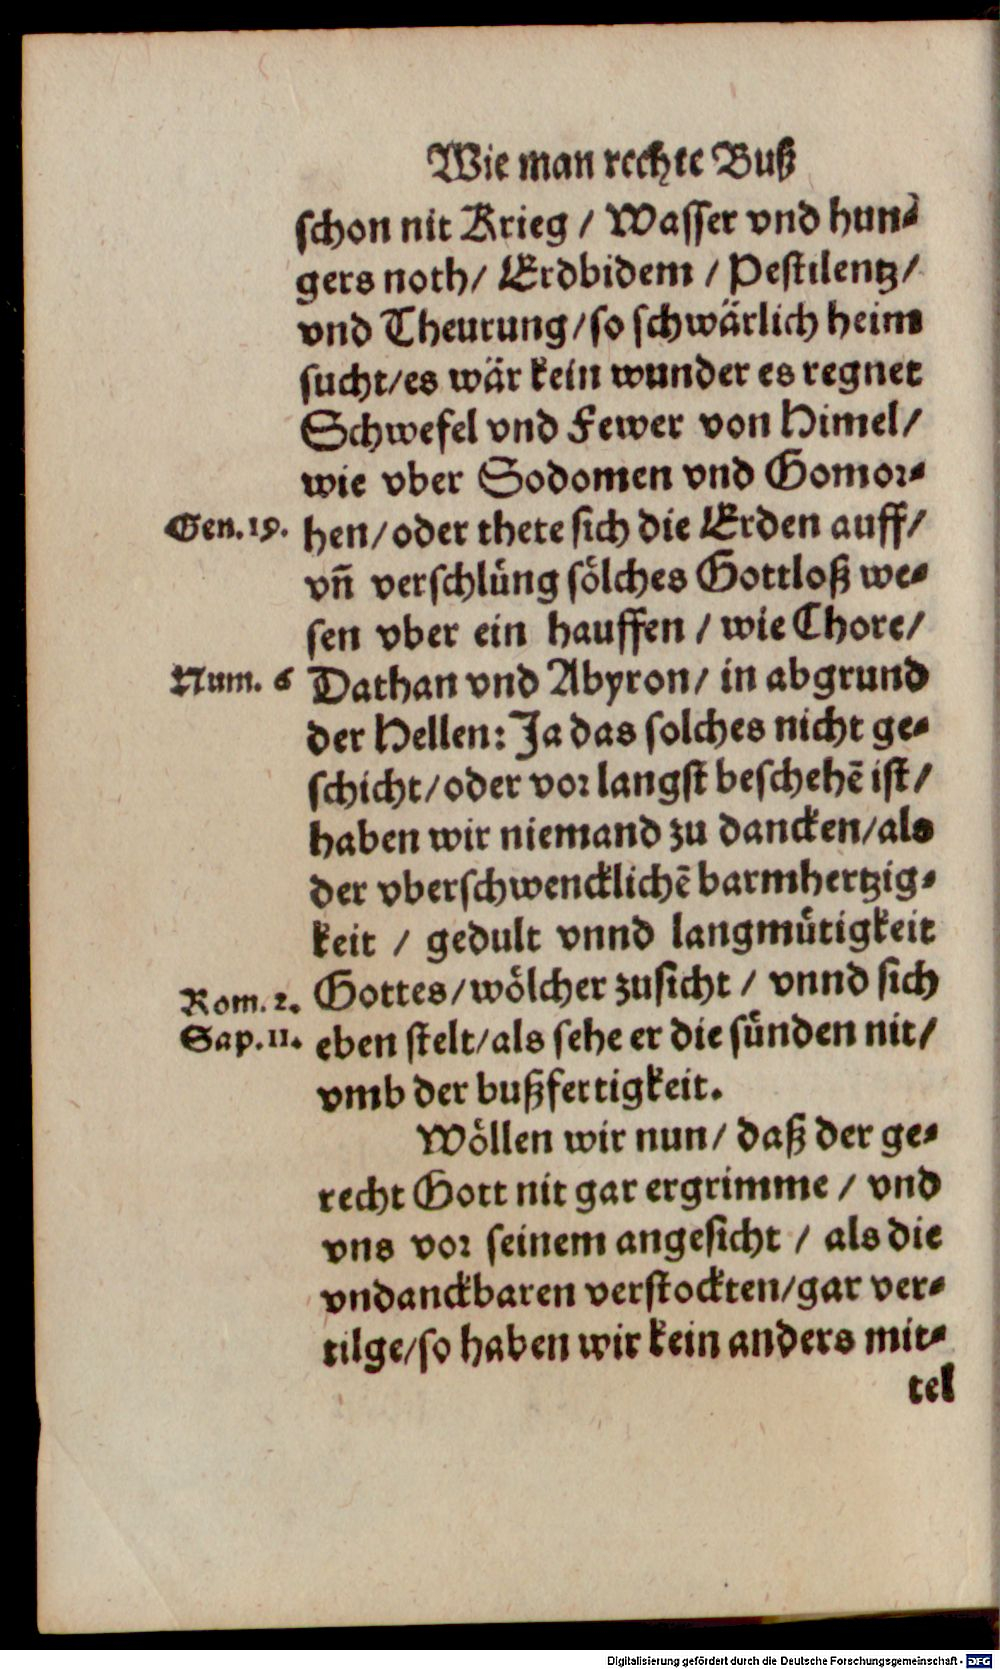 Wie man rechte Buß
schon nit Krieg / Wasser vnd hun⸗
gers noth / Erdbidem / Pestilentz /
vnd Theurung / so schwärlich heim
sucht / es wär kein wunder es regnet
Schwefel vnd Fewer von Himel /
wie vber Sodomen vnd Gomor⸗
Gen. 19. hen / oder thete sich die Erden auff /
vñ verschlüng sölches Gottloß we⸗
sen vber ein hauffen / wie Chore /
Num. 6 Dathan vnd Abyron / in abgrund
der Hellen: Ja das solches nicht ge⸗
schicht / oder vor langst beschehẽ ist /
haben wir niemand zu dancken / als
der vberschwencklichẽ barmhertzig⸗
keit / gedult vnnd langmütigkeit
Rom. 2. Gottes / wölcher zusicht / vnnd sich
Sap. 11. eben stelt / als sehe er die sünden nit /
vmb der bußfertigkeit.
Wöllen wir nun / daß der ge⸗
recht Gott nit gar ergrimme / vnd
vns vor seinem angesicht / als die
vndanckbaren verstockten / gar ver⸗
tilge / so haben wir kein anders mit⸗
tel
Digitalisierung gefördert durch die Deutsche Forschungsgemeinschaft - DFG